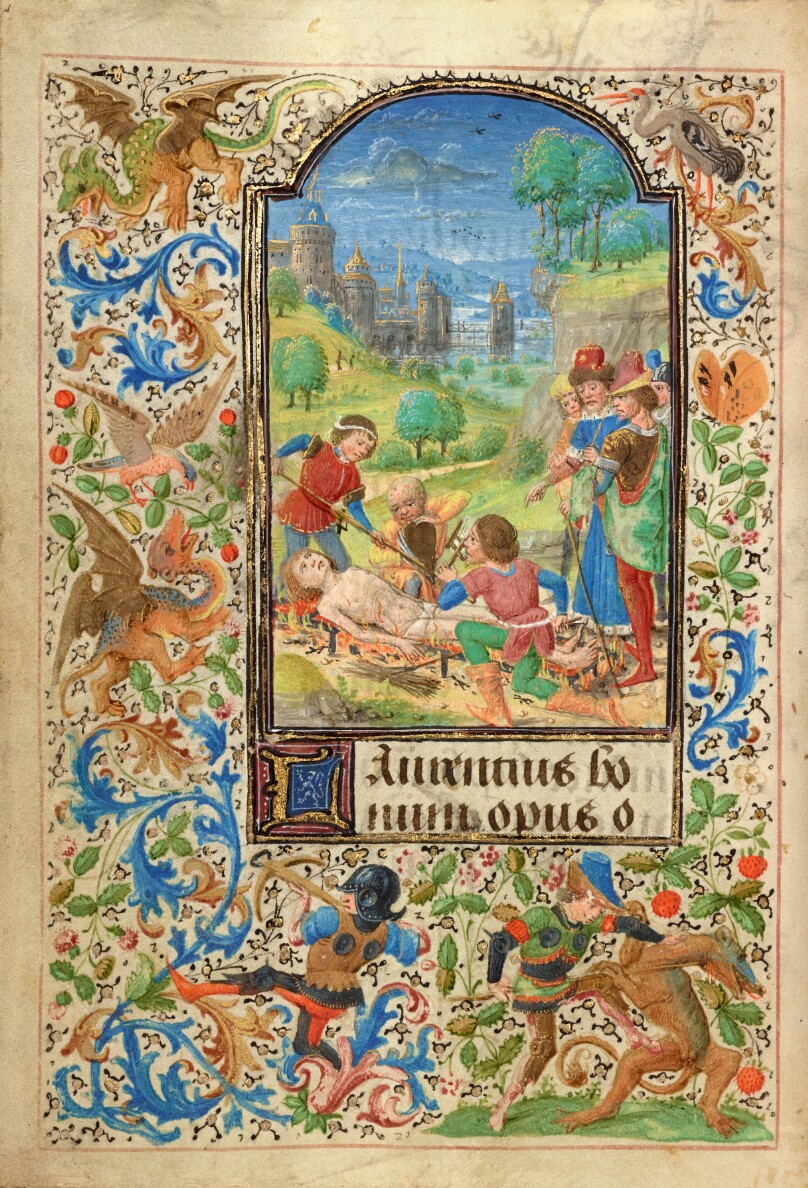 Laurentius bo
num opus o